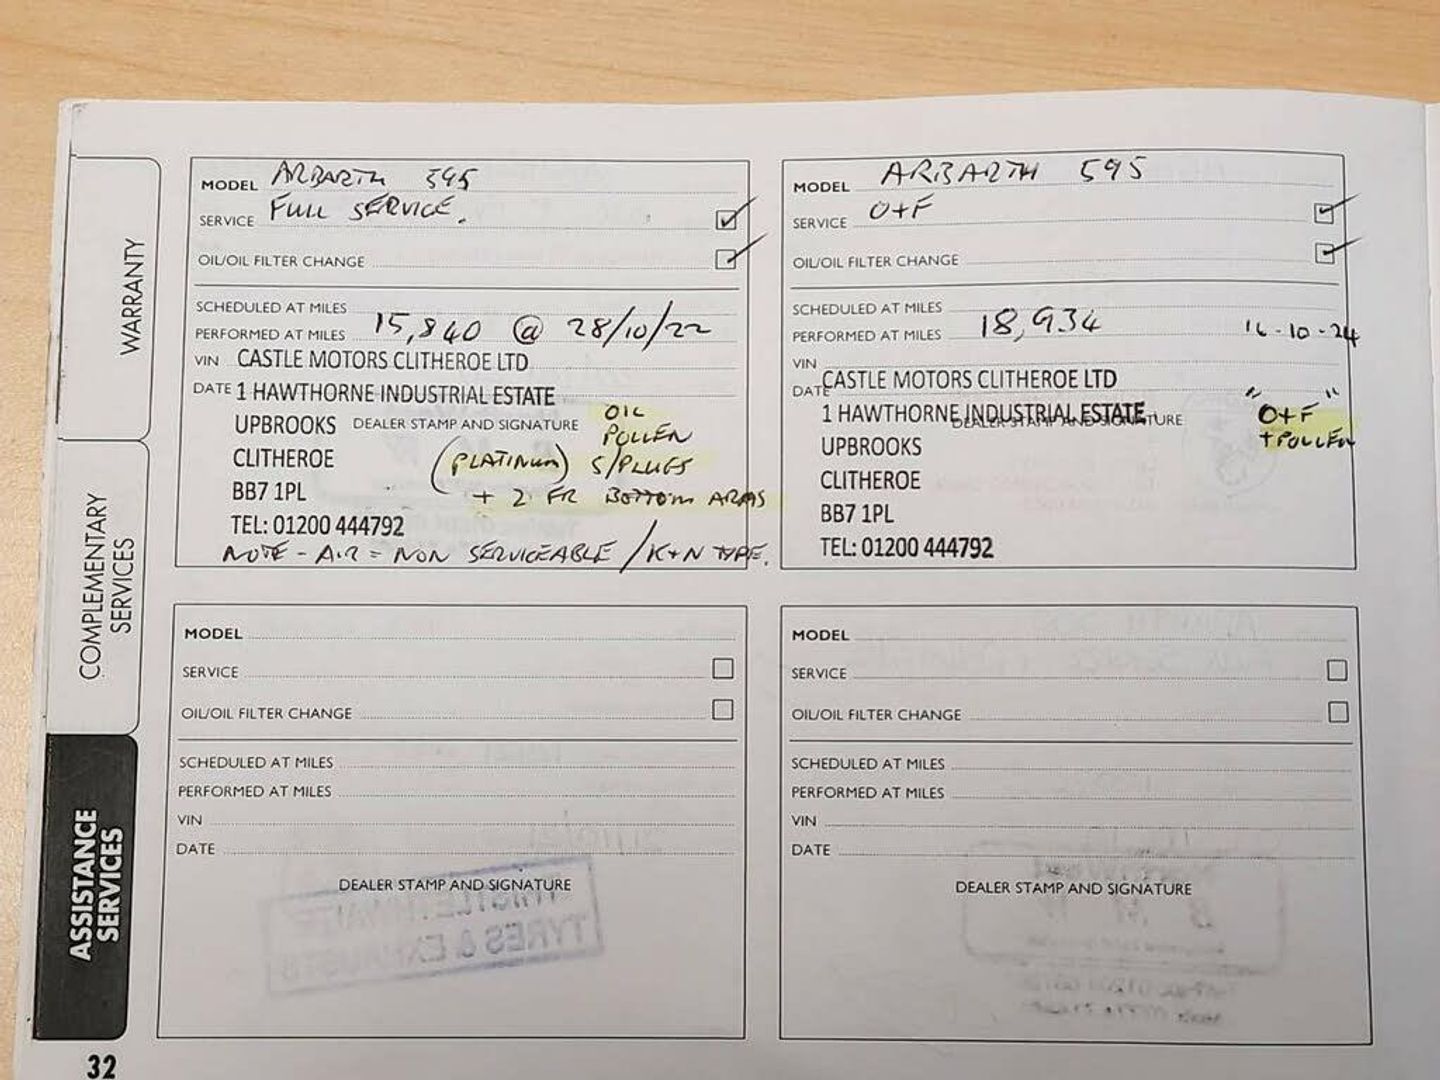 WARRANTY
COMPLEMENTARY
SERVICES
ASSISTANCE
SERVICES
32
MODEL ARBARTH 595
SERVICE FULL SERVICE.
OIL/OIL FILTER CHANGE
SCHEDULED AT MILES
PERFORMED AT MILES 15,840 @ 28/10/22
VIN CASTLE MOTORS CLITHEROE LTD
DATE 1 HAWTHORNE INDUSTRIAL ESTATE
UPBROOKS DEALER STAMP AND SIGNATURE
OIL
POLLEN
CLITHEROE (PLATINUM) S/PLUGS
BB7 1PL + 2 FR BOTTOM ARMS
TEL: 01200 444792
NOTE - AIR = NON SERVICEABLE / K+N TYPE.
MODEL ARBARTH 595
SERVICE O+F
OIL/OIL FILTER CHANGE
SCHEDULED AT MILES
PERFORMED AT MILES 18,934 16-10-24
VIN
DATE CASTLE MOTORS CLITHEROE LTD
1 HAWTHORNE INDUSTRIAL ESTATE
DEALER STAMP AND SIGNATURE
"O+F"
+ POLLEN
UPBROOKS
CLITHEROE
BB7 1PL
TEL: 01200 444792
MODEL
SERVICE
OIL/OIL FILTER CHANGE
SCHEDULED AT MILES
PERFORMED AT MILES
VIN
DATE
DEALER STAMP AND SIGNATURE
TYRES & EXHAUSTS
MODEL
SERVICE
OIL/OIL FILTER CHANGE
SCHEDULED AT MILES
PERFORMED AT MILES
VIN
DATE
DEALER STAMP AND SIGNATURE